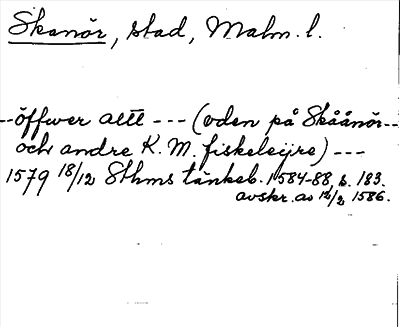 Skanör, stad, Malm. l.
--öffwer altt --- (oden på Skåånör--
och andre K. M. fiskeleijre) ---
1579 18/12 Sthms tänkeb. 1584-88, s. 183.
avskr. av 12/2 1586.